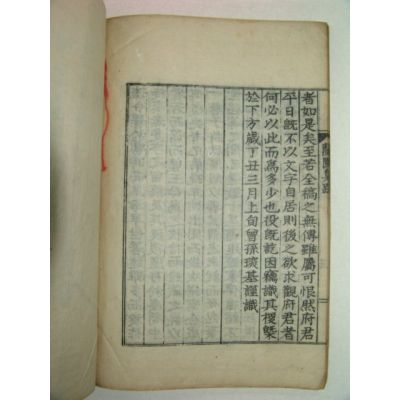 者如是矣至若全稿之無傳雖屬可恨然府君
平日旣不以文字自居則後之欲求觀府君者
何必以此而爲多少也役旣訖因竊識其槩
於下方歲丁丑三月上旬曾孫 基謹識